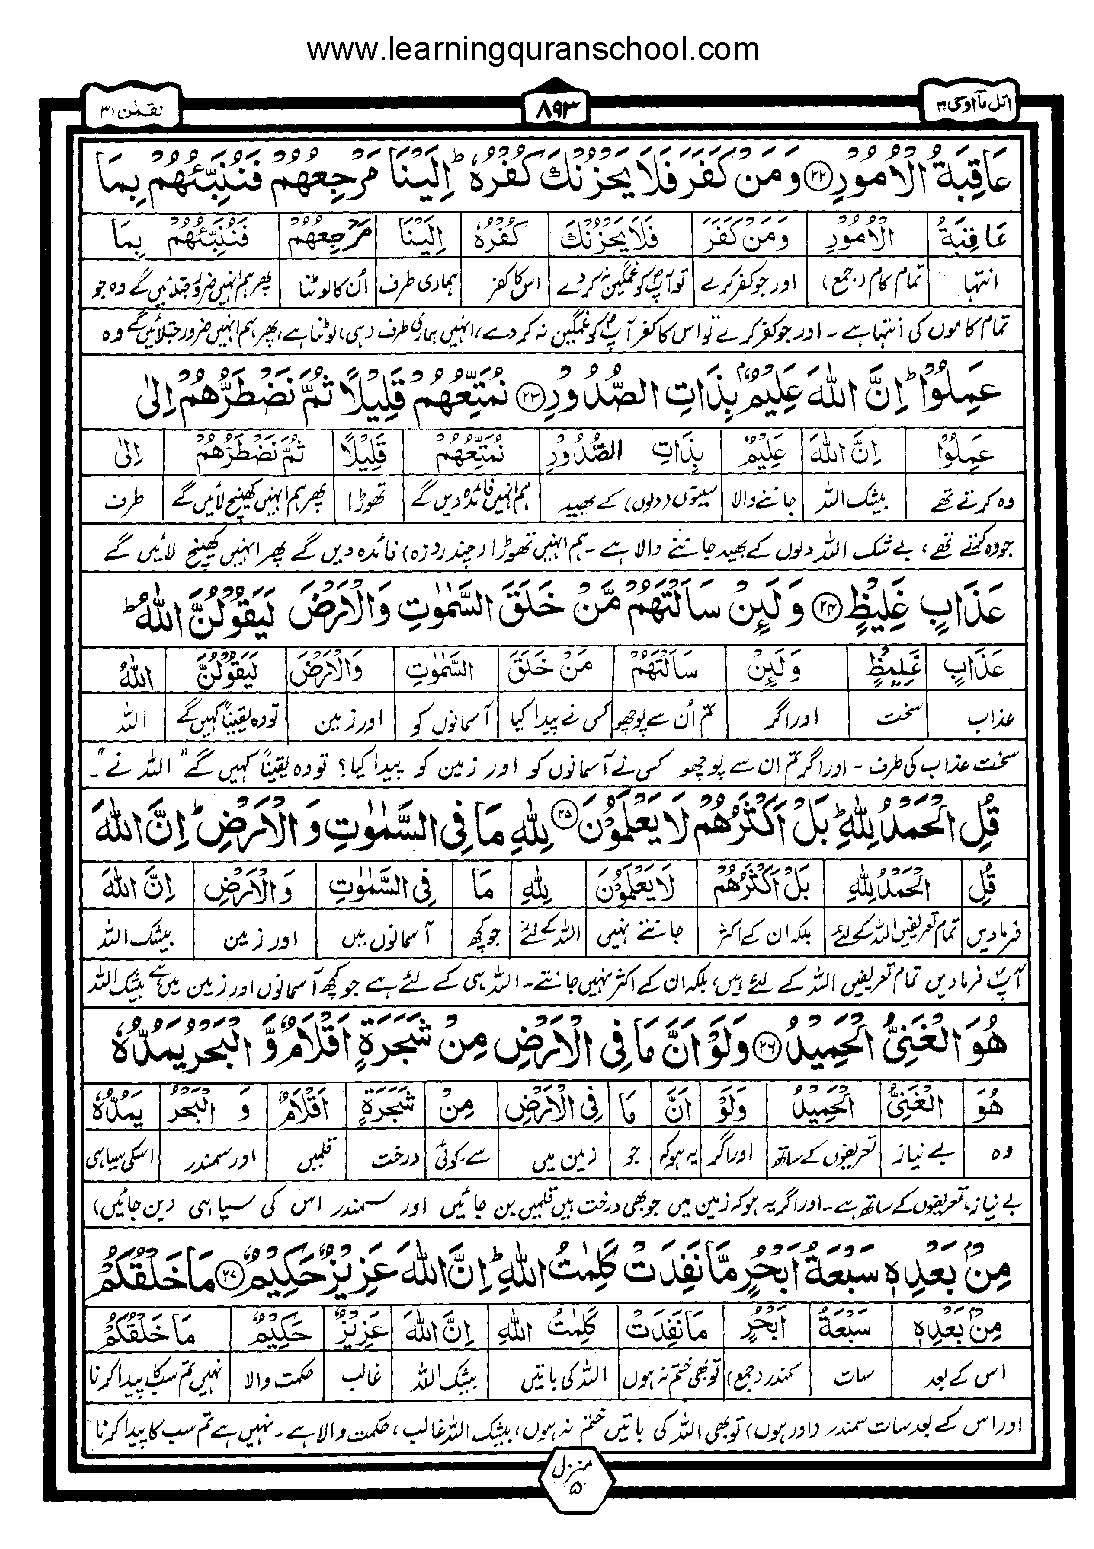 www.learningquranschool.com
اتل مآ اوحی ۲۱
۸۹۳
لقمٰن ۳۱
عَاقِبَةُ الْاُمُوْرِ ۝۲۲ وَمَنْ كَفَرَ فَلَا يَحْزُنْكَ كُفْرُهٗ ؕ اِلَيْنَا مَرْجِعُهُمْ فَنُنَبِّئُهُمْ بِمَا
عَاقِبَةُ الْاُمُوْرِ وَمَنْ كَفَرَ فَلَا يَحْزُنْكَ كُفْرُهٗ اِلَيْنَا مَرْجِعُهُمْ فَنُنَبِّئُهُمْ بِمَا
انتہا تمام کام (جمع) اور جو کفر کرے تو آپؐ کو غمگین نہ کردے اس کا کفر ہماری طرف اُن کا لوٹنا پھر ہم انہیں ضرور جتلائیں گے وہ جو
تمام کاموں کی انتہا ہے ۔ اور جو کفر کرے تو اس کا کفر آپؐ کو غمگین نہ کر دے، انہیں ہماری طرف ہی لوٹنا ہے، پھر ہم انہیں ضرور جتلائیں گے وہ
عَمِلُوْا ؕ اِنَّ اللّٰهَ عَلِيْمٌۢ بِذَاتِ الصُّدُوْرِ ۝۲۳ نُمَتِّعُهُمْ قَلِيْلًا ثُمَّ نَضْطَرُّهُمْ اِلٰى
عَمِلُوْا اِنَّ اللّٰهَ عَلِيْمٌۢ بِذَاتِ الصُّدُوْرِ نُمَتِّعُهُمْ قَلِيْلًا ثُمَّ نَضْطَرُّهُمْ اِلٰى
وہ کرتے تھے بیشک اللہ جاننے والا سینوں (دلوں) کے بھید ہم انہیں فائدہ دیں گے تھوڑا پھر ہم انہیں کھینچ لائیں گے طرف
جو وہ کرتے تھے، بے شک اللہ دلوں کے بھید جاننے والا ہے ۔ ہم انہیں تھوڑا (چند روزہ) فائدہ دیں گے پھر انہیں کھینچ لائیں گے
عَذَابٍ غَلِيْظٍ ۝۲۴ وَلَئِنْ سَاَلْتَهُمْ مَّنْ خَلَقَ السَّمٰوٰتِ وَالْاَرْضَ لَيَقُوْلُنَّ اللّٰهُ ؕ
عَذَابٍ غَلِيْظٍ وَلَئِنْ سَاَلْتَهُمْ مَنْ خَلَقَ السَّمٰوٰتِ وَالْاَرْضَ لَيَقُوْلُنَّ اللّٰهُ
عذاب سخت اور اگر تم اُن سے پوچھو کس نے پیدا کیا آسمانوں کو اور زمین تو وہ یقیناً کہیں گے اللہ
سخت عذاب کی طرف ۔ اور اگر تم ان سے پوچھو کس نے آسمانوں کو اور زمین کو پیدا کیا؟ تو وہ یقیناً کہیں گے "اللہ نے"۔
قُلِ الْحَمْدُ لِلّٰهِ ؕ بَلْ اَكْثَرُهُمْ لَا يَعْلَمُوْنَ ۝۲۵ لِلّٰهِ مَا فِى السَّمٰوٰتِ وَالْاَرْضِ ؕ اِنَّ اللّٰهَ
قُلِ الْحَمْدُ لِلّٰهِ بَلْ اَكْثَرُهُمْ لَا يَعْلَمُوْنَ لِلّٰهِ مَا فِى السَّمٰوٰتِ وَالْاَرْضِ اِنَّ اللّٰهَ
فرمادیں تمام تعریفیں اللہ کے لئے بلکہ ان کے اکثر جانتے نہیں اللہ کے لئے جو کچھ آسمانوں میں اور زمین بیشک اللہ
آپؐ فرما دیں تمام تعریفیں اللہ کے لئے ہیں، بلکہ ان کے اکثر نہیں جانتے ۔ اللہ ہی کے لئے ہے جو کچھ آسمانوں اور زمین میں ہے، بیشک اللہ
هُوَ الْغَنِىُّ الْحَمِيْدُ ۝۲۶ وَلَوْ اَنَّ مَا فِى الْاَرْضِ مِنْ شَجَرَةٍ اَقْلَامٌ وَّ الْبَحْرُ يَمُدُّهٗ
هُوَ الْغَنِىُّ الْحَمِيْدُ وَلَوْ اَنَّ مَا فِى الْاَرْضِ مِنْ شَجَرَةٍ اَقْلَامٌ وَ الْبَحْرُ يَمُدُّهٗ
وہ بے نیاز تعریفوں کے ساتھ اور اگر یہ ہو کہ جو زمین میں سے۔ کوئی درخت قلمیں اور سمندر اسکی سیاہی
بے نیاز، تعریفوں کے ساتھ ہے ۔ اور اگر یہ ہو کہ زمین میں جو بھی درخت ہیں قلمیں بن جائیں اور سمندر اس کی سیاہی (بن جائیں)
مِنْۢ بَعْدِهٖ سَبْعَةُ اَبْحُرٍ مَّا نَفِدَتْ كَلِمٰتُ اللّٰهِ ؕ اِنَّ اللّٰهَ عَزِيْزٌ حَكِيْمٌ ۝۲۷ مَا خَلْقُكُمْ
مِنْۢ بَعْدِهٖ سَبْعَةُ اَبْحُرٍ مَا نَفِدَتْ كَلِمٰتُ اللّٰهِ اِنَّ اللّٰهَ عَزِيْزٌ حَكِيْمٌ مَا خَلْقُكُمْ
اس کے بعد سات سمندر (جمع) تو بھی ختم نہ ہوں اللہ کی باتیں بیشک اللہ غالب حکمت والا نہیں تم سب کا پیدا کرنا
اور اس کے بعد سات سمندر (اور ہوں) تو بھی اللہ کی باتیں ختم نہ ہوں، بیشک اللہ غالب، حکمت والا ہے ۔ نہیں ہے تم سب کا پیدا کرنا
منزل ۵